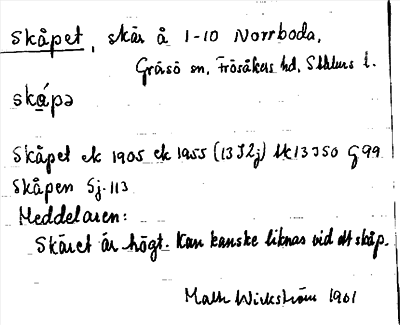 Skåpet, skär å 1-10 Norrboda,
Gräsö sn, Frösåkers hd, Sthlms l.
skápə
Skåpet ek 1905 ek 1955 (13I2j) tk 13I50 G99
Skåpen Sj. 113
Meddelaren:
Skäret är högt. Kan kanske liknas vid ett skåp.
Malte Wirkström 1961